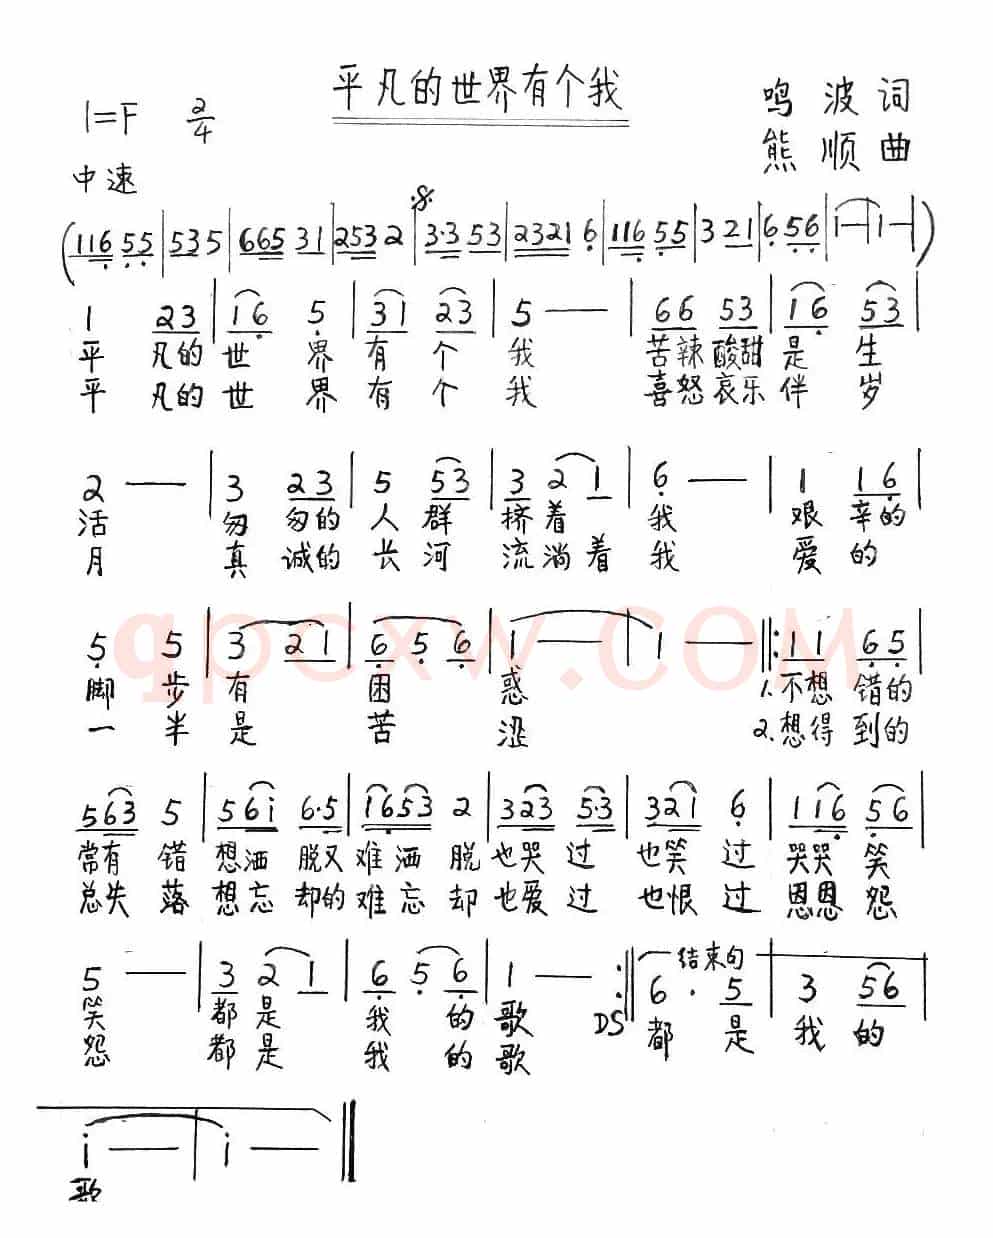 平凡的世界有个我
1=F 2/4
鸣波词
熊顺曲
中速
(116 55|535|665 31|253 2|3·3 53|2321 6|116 55|3 21|6 56|1—|1—|)
1 23|16 5|31 23|5—|66 53|16 53|
平 凡的 世 界 有 个 我 苦辣 酸甜 是 生
平 凡的 世 界 有 个 我 喜怒 哀乐 伴 岁
2—|3 23|5 53|3 2 1|6—|1 16|
活 匆 匆的 人 群 挤 着 我 艰 辛的
月 真 诚的 长 河 流 淌 着 我 爱 的
5 5|3 21|6 5 6|1—|1—‖:11 65|
脚 步 有 困 惑 1.不想 错的
一 半 是 苦 涩 2.想得 到的
563 5|561 6·5|1653 2|323 5·3|321 6|116 56|
常有 错 想洒 脱又 难洒 脱 也哭 过 也笑 过 哭哭 笑
总失 落 想忘 却的 难忘 却 也爱 过 也恨 过 恩恩 怨
5—|3 2 1|6 5 6|1—:‖6·5|3 56|
结束句
笑 都 是 我 的 歌 DS 都 是 我 的
怨 都 是 我 的 歌
i—|i—‖
歌
qpcxw.COM